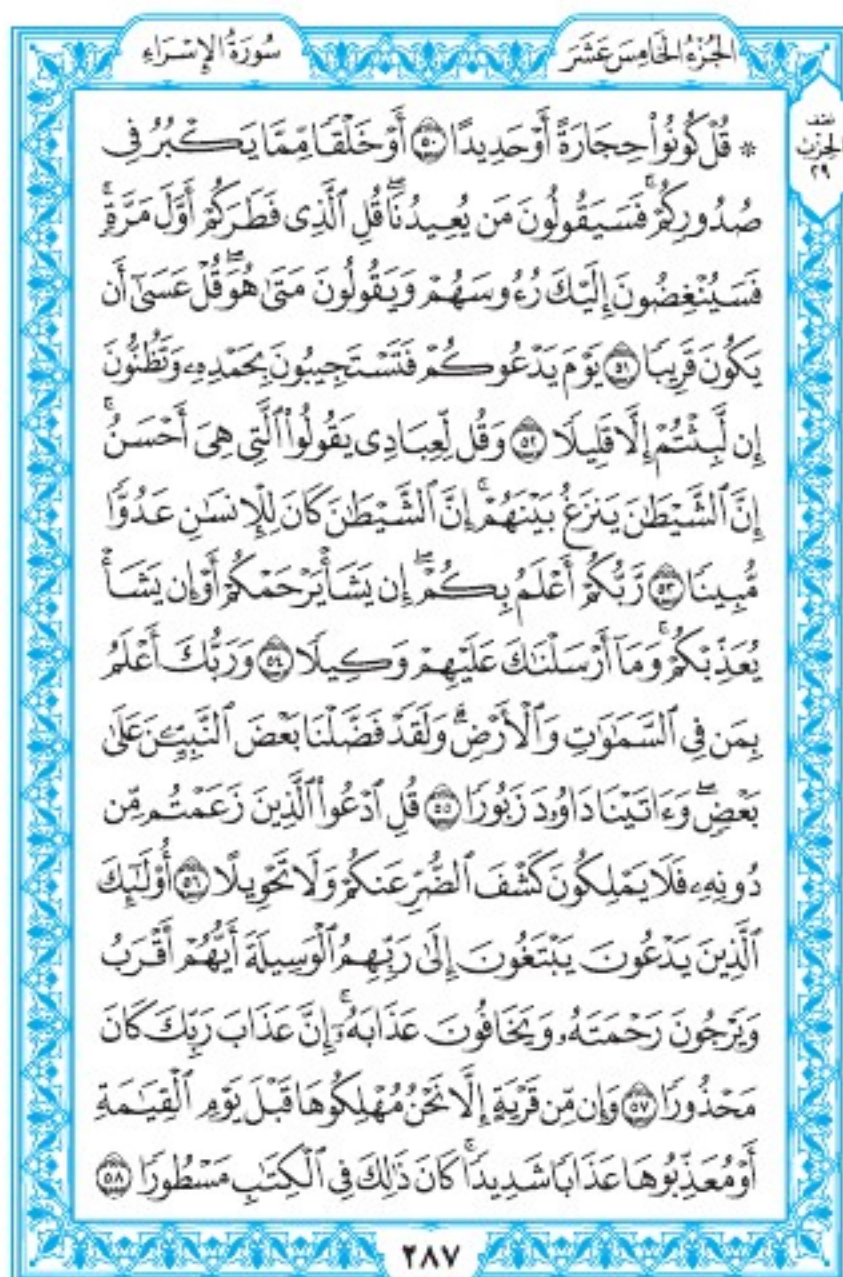 سُورَةُ الإِسْرَاءِ
الجُزْءُ الخَامِسَ عَشَرَ
نصف
الحِزْبِ
٢٩
* قُلْ كُونُواْ حِجَارَةً أَوْ حَدِيدًا ٥٠ أَوْ خَلْقًا مِّمَّا يَكْبُرُ فِي
صُدُورِكُمْۚ فَسَيَقُولُونَ مَن يُعِيدُنَاۖ قُلِ ٱلَّذِي فَطَرَكُمْ أَوَّلَ مَرَّةٍۚ
فَسَيُنْغِضُونَ إِلَيْكَ رُءُوسَهُمْ وَيَقُولُونَ مَتَىٰ هُوَۖ قُلْ عَسَىٰٓ أَن
يَكُونَ قَرِيبًا ٥١ يَوْمَ يَدْعُوكُمْ فَتَسْتَجِيبُونَ بِحَمْدِهِۦ وَتَظُنُّونَ
إِن لَّبِثْتُمْ إِلَّا قَلِيلًا ٥٢ وَقُل لِّعِبَادِي يَقُولُواْ ٱلَّتِي هِيَ أَحْسَنُۚ
إِنَّ ٱلشَّيْطَٰنَ يَنزَغُ بَيْنَهُمْۚ إِنَّ ٱلشَّيْطَٰنَ كَانَ لِلْإِنسَٰنِ عَدُوًّا
مُّبِينًا ٥٣ رَّبُّكُمْ أَعْلَمُ بِكُمْۖ إِن يَشَأْ يَرْحَمْكُمْ أَوْ إِن يَشَأْ
يُعَذِّبْكُمْۚ وَمَآ أَرْسَلْنَٰكَ عَلَيْهِمْ وَكِيلًا ٥٤ وَرَبُّكَ أَعْلَمُ
بِمَن فِي ٱلسَّمَٰوَٰتِ وَٱلْأَرْضِۗ وَلَقَدْ فَضَّلْنَا بَعْضَ ٱلنَّبِيِّۦنَ عَلَىٰ
بَعْضٍۖ وَءَاتَيْنَا دَاوُۥدَ زَبُورًا ٥٥ قُلِ ٱدْعُواْ ٱلَّذِينَ زَعَمْتُم مِّن
دُونِهِۦ فَلَا يَمْلِكُونَ كَشْفَ ٱلضُّرِّ عَنكُمْ وَلَا تَحْوِيلًا ٥٦ أُوْلَٰٓئِكَ
ٱلَّذِينَ يَدْعُونَ يَبْتَغُونَ إِلَىٰ رَبِّهِمُ ٱلْوَسِيلَةَ أَيُّهُمْ أَقْرَبُ
وَيَرْجُونَ رَحْمَتَهُۥ وَيَخَافُونَ عَذَابَهُۥٓۚ إِنَّ عَذَابَ رَبِّكَ كَانَ
مَحْذُورًا ٥٧ وَإِن مِّن قَرْيَةٍ إِلَّا نَحْنُ مُهْلِكُوهَا قَبْلَ يَوْمِ ٱلْقِيَٰمَةِ
أَوْ مُعَذِّبُوهَا عَذَابًا شَدِيدًاۚ كَانَ ذَٰلِكَ فِي ٱلْكِتَٰبِ مَسْطُورًا ٥٨
٢٨٧